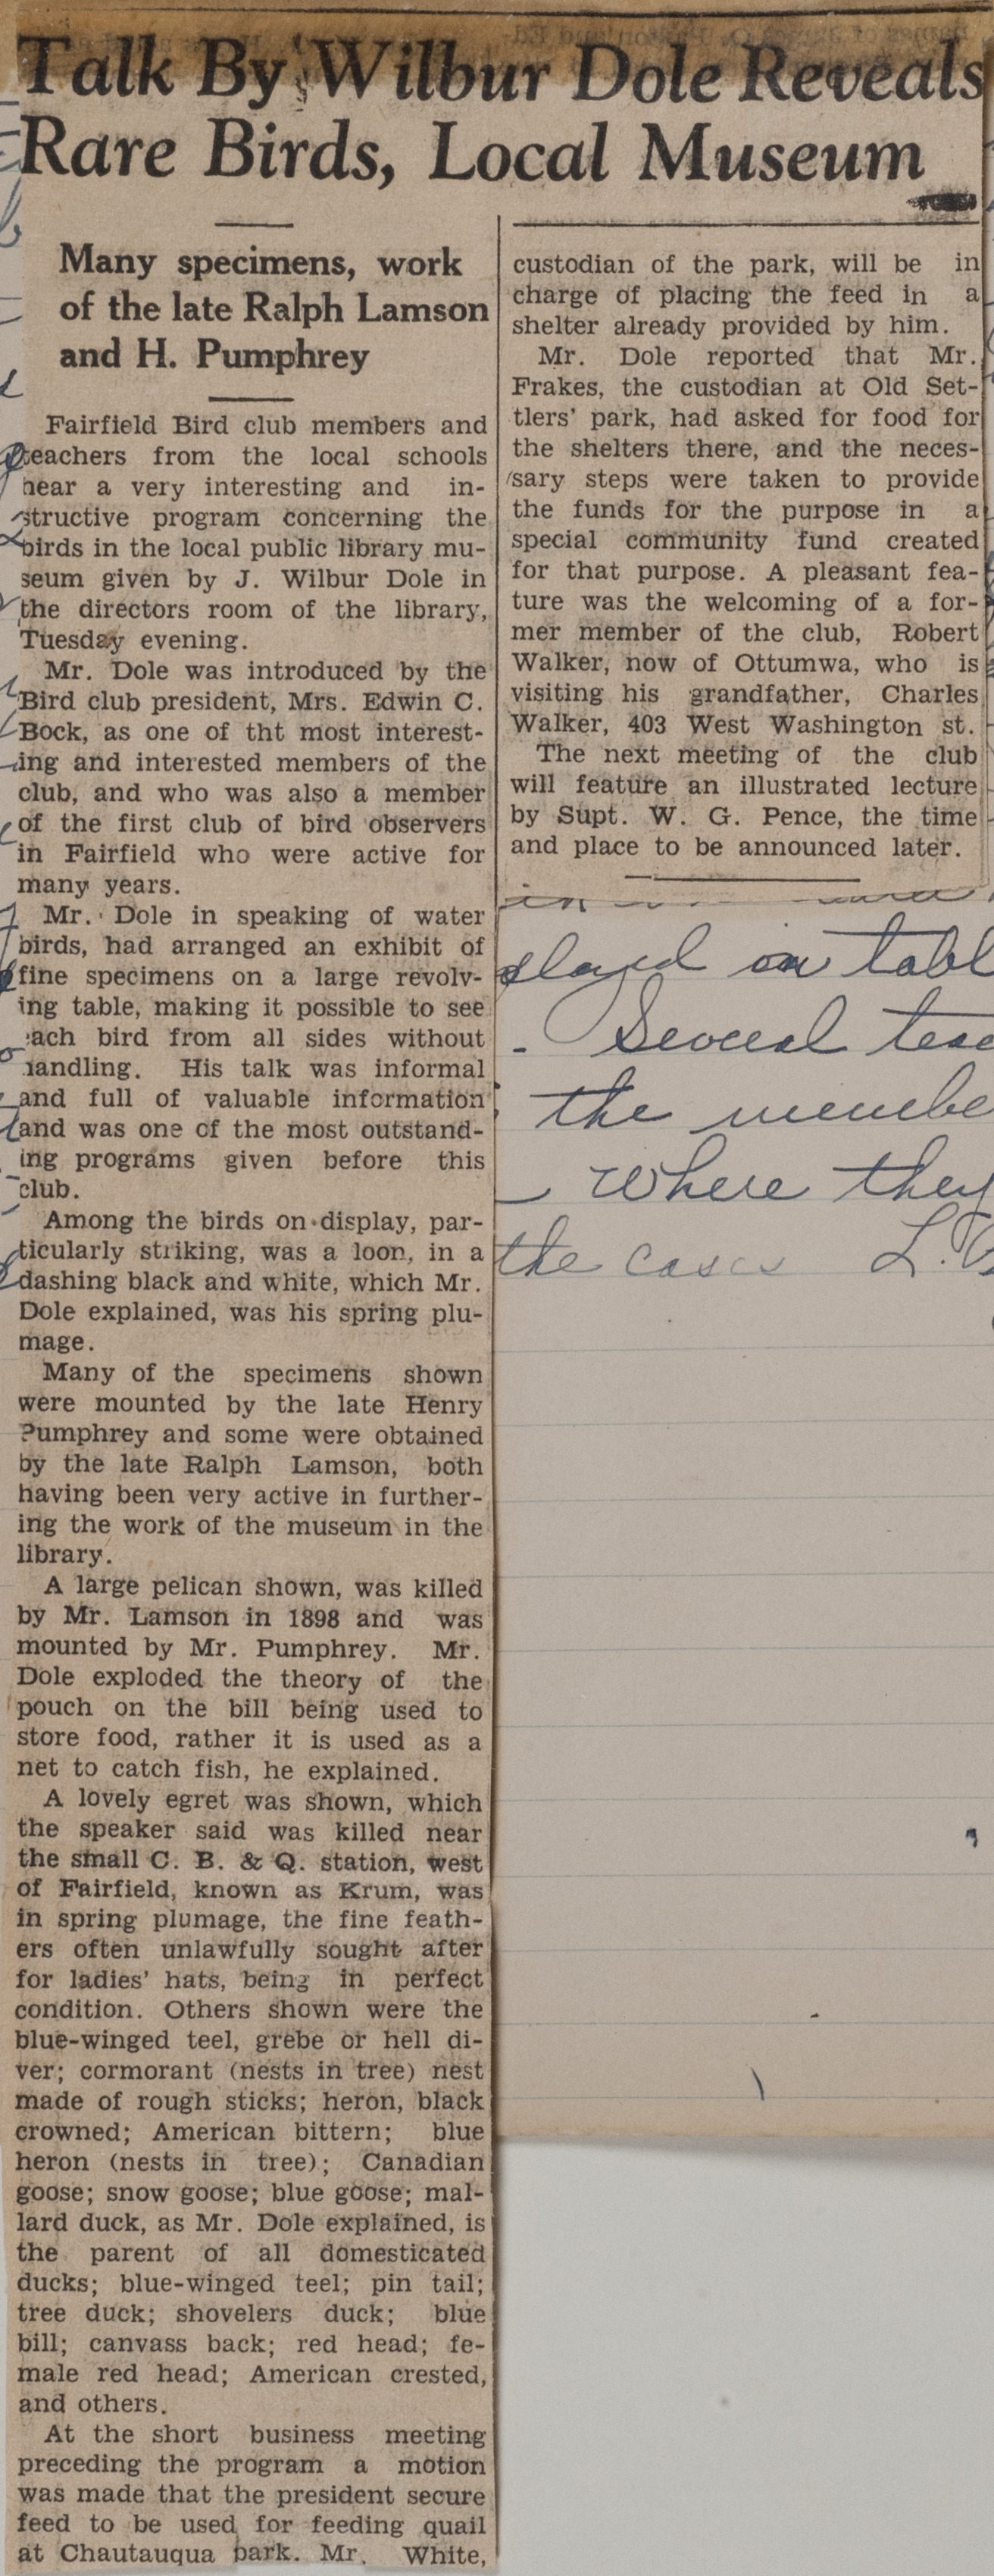 Talk By Wilbur Dole Reveals
Rare Birds, Local Museum
Many specimens, work
of the late Ralph Lamson
and H. Pumphrey
Fairfield Bird club members and
teachers from the local schools
hear a very interesting and in-
structive program concerning the
birds in the local public library mu-
seum given by J. Wilbur Dole in
the directors room of the library,
Tuesday evening.
Mr. Dole was introduced by the
Bird club president, Mrs. Edwin C.
Bock, as one of tht most interest-
ing and interested members of the
club, and who was also a member
of the first club of bird observers
in Fairfield who were active for
many years.
Mr. Dole in speaking of water
birds, had arranged an exhibit of
fine specimens on a large revolv-
ing table, making it possible to see
each bird from all sides without
handling. His talk was informal
and full of valuable information
and was one of the most outstand-
ing programs given before this
club.
Among the birds on display, par-
ticularly striking, was a loon, in a
dashing black and white, which Mr.
Dole explained, was his spring plu-
mage.
Many of the specimens shown
were mounted by the late Henry
Pumphrey and some were obtained
by the late Ralph Lamson, both
having been very active in further-
ing the work of the museum in the
library.
A large pelican shown, was killed
by Mr. Lamson in 1898 and was
mounted by Mr. Pumphrey. Mr.
Dole exploded the theory of the
pouch on the bill being used to
store food, rather it is used as a
net to catch fish, he explained.
A lovely egret was shown, which
the speaker said was killed near
the small C. B. & Q. station, west
of Fairfield, known as Krum, was
in spring plumage, the fine feath-
ers often unlawfully sought after
for ladies' hats, being in perfect
condition. Others shown were the
blue-winged teel, grebe or hell di-
ver; cormorant (nests in tree) nest
made of rough sticks; heron, black
crowned; American bittern; blue
heron (nests in tree); Canadian
goose; snow goose; blue goose; mal-
lard duck, as Mr. Dole explained, is
the parent of all domesticated
ducks; blue-winged teel; pin tail;
tree duck; shovelers duck; blue
bill; canvass back; red head; fe-
male red head; American crested,
and others.
At the short business meeting
preceding the program a motion
was made that the president secure
feed to be used for feeding quail
at Chautauqua park. Mr. White,
custodian of the park, will be in
charge of placing the feed in a
shelter already provided by him.
Mr. Dole reported that Mr.
Frakes, the custodian at Old Set-
tlers' park, had asked for food for
the shelters there, and the neces-
sary steps were taken to provide
the funds for the purpose in a
special community fund created
for that purpose. A pleasant fea-
ture was the welcoming of a for-
mer member of the club, Robert
Walker, now of Ottumwa, who is
visiting his grandfather, Charles
Walker, 403 West Washington st.
The next meeting of the club
will feature an illustrated lecture
by Supt. W. G. Pence, the time
and place to be announced later.
played on tabl
Several teac
the membe
where they
the cases L.